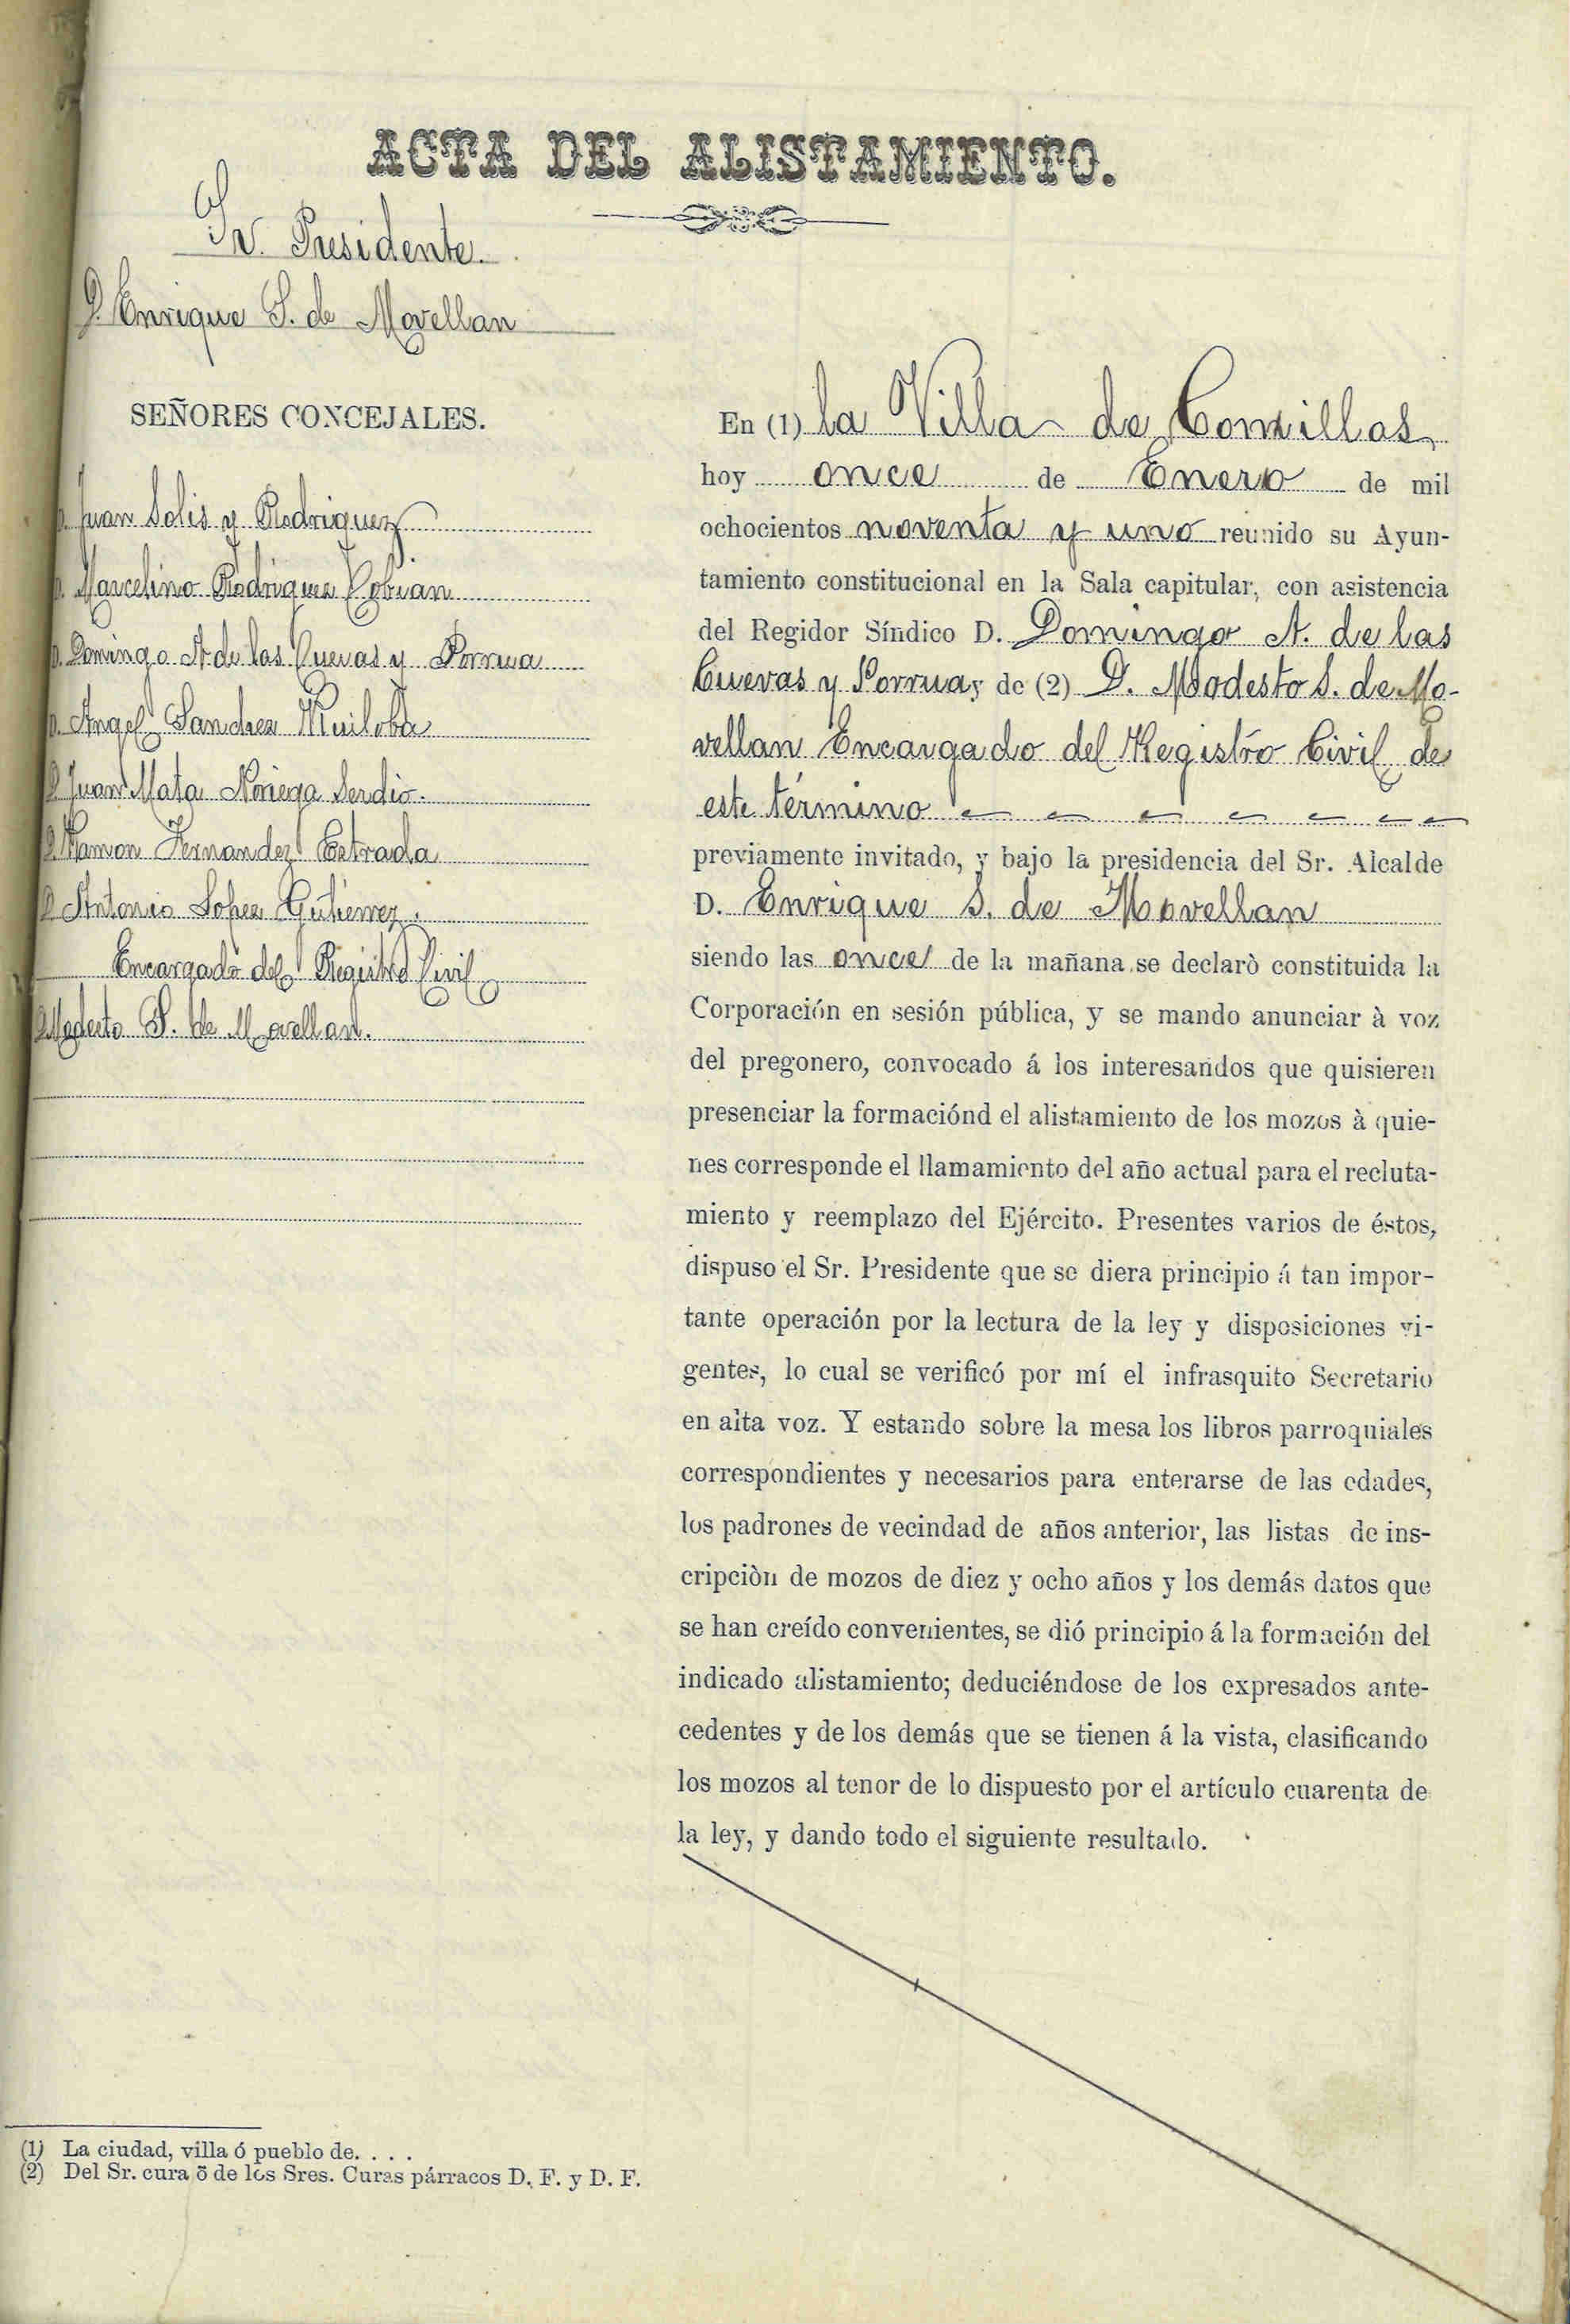 ACTA DEL ALISTAMIENTO.
Sr. Presidente.
D. Enrique S. de Movellan
SEÑORES CONCEJALES.
D. Juan Solis y Rodriguez
D. Marcelino Rodriguez Cobian
D. Domingo A. de las Cuevas y Porrua
D. Angel Sanchez Ruiloba
D. Juan Mata Noriega Serdio.
D. Ramon Fernandez Estrada
D. Antonio Lopez Gutierrez.
Encargado del Registro Civil
D. Modesto S. de Movellan.
En (1) la Villa de Comillas,
hoy once de Enero de mil
ochocientos noventa y uno reunido su Ayun-
tamiento constitucional en la Sala capitular, con asistencia
del Regidor Síndico D. Domingo A. de las
Cuevas y Porrua y de (2) D. Modesto S. de Mo-
vellan Encargado del Registro Civil de
este término
previamente invitado, y bajo la presidencia del Sr. Alcalde
D. Enrique S. de Movellan
siendo las once de la mañana se declarò constituida la
Corporación en sesión pública, y se mando anunciar à voz
del pregonero, convocado á los interesandos que quisieren
presenciar la formaciónd el alistamiento de los mozos à quie-
nes corresponde el llamamiento del año actual para el recluta-
miento y reemplazo del Ejército. Presentes varios de éstos,
dispuso el Sr. Presidente que se diera principio á tan impor-
tante operación por la lectura de la ley y disposiciones vi-
gentes, lo cual se verificó por mí el infrasquito Secretario
en alta voz. Y estando sobre la mesa los libros parroquiales
correspondientes y necesarios para enterarse de las edades,
los padrones de vecindad de años anterior, las listas de ins-
cripciòn de mozos de diez y ocho años y los demás datos que
se han creído convenientes, se dió principio á la formación del
indicado alistamiento; deduciéndose de los expresados ante-
cedentes y de los demás que se tienen á la vista, clasificando
los mozos al tenor de lo dispuesto por el artículo cuarenta de
la ley, y dando todo el siguiente resultado.
(1) La ciudad, villa ó pueblo de. . . .
(2) Del Sr. cura õ de los Sres. Curas párracos D. F. y D. F.